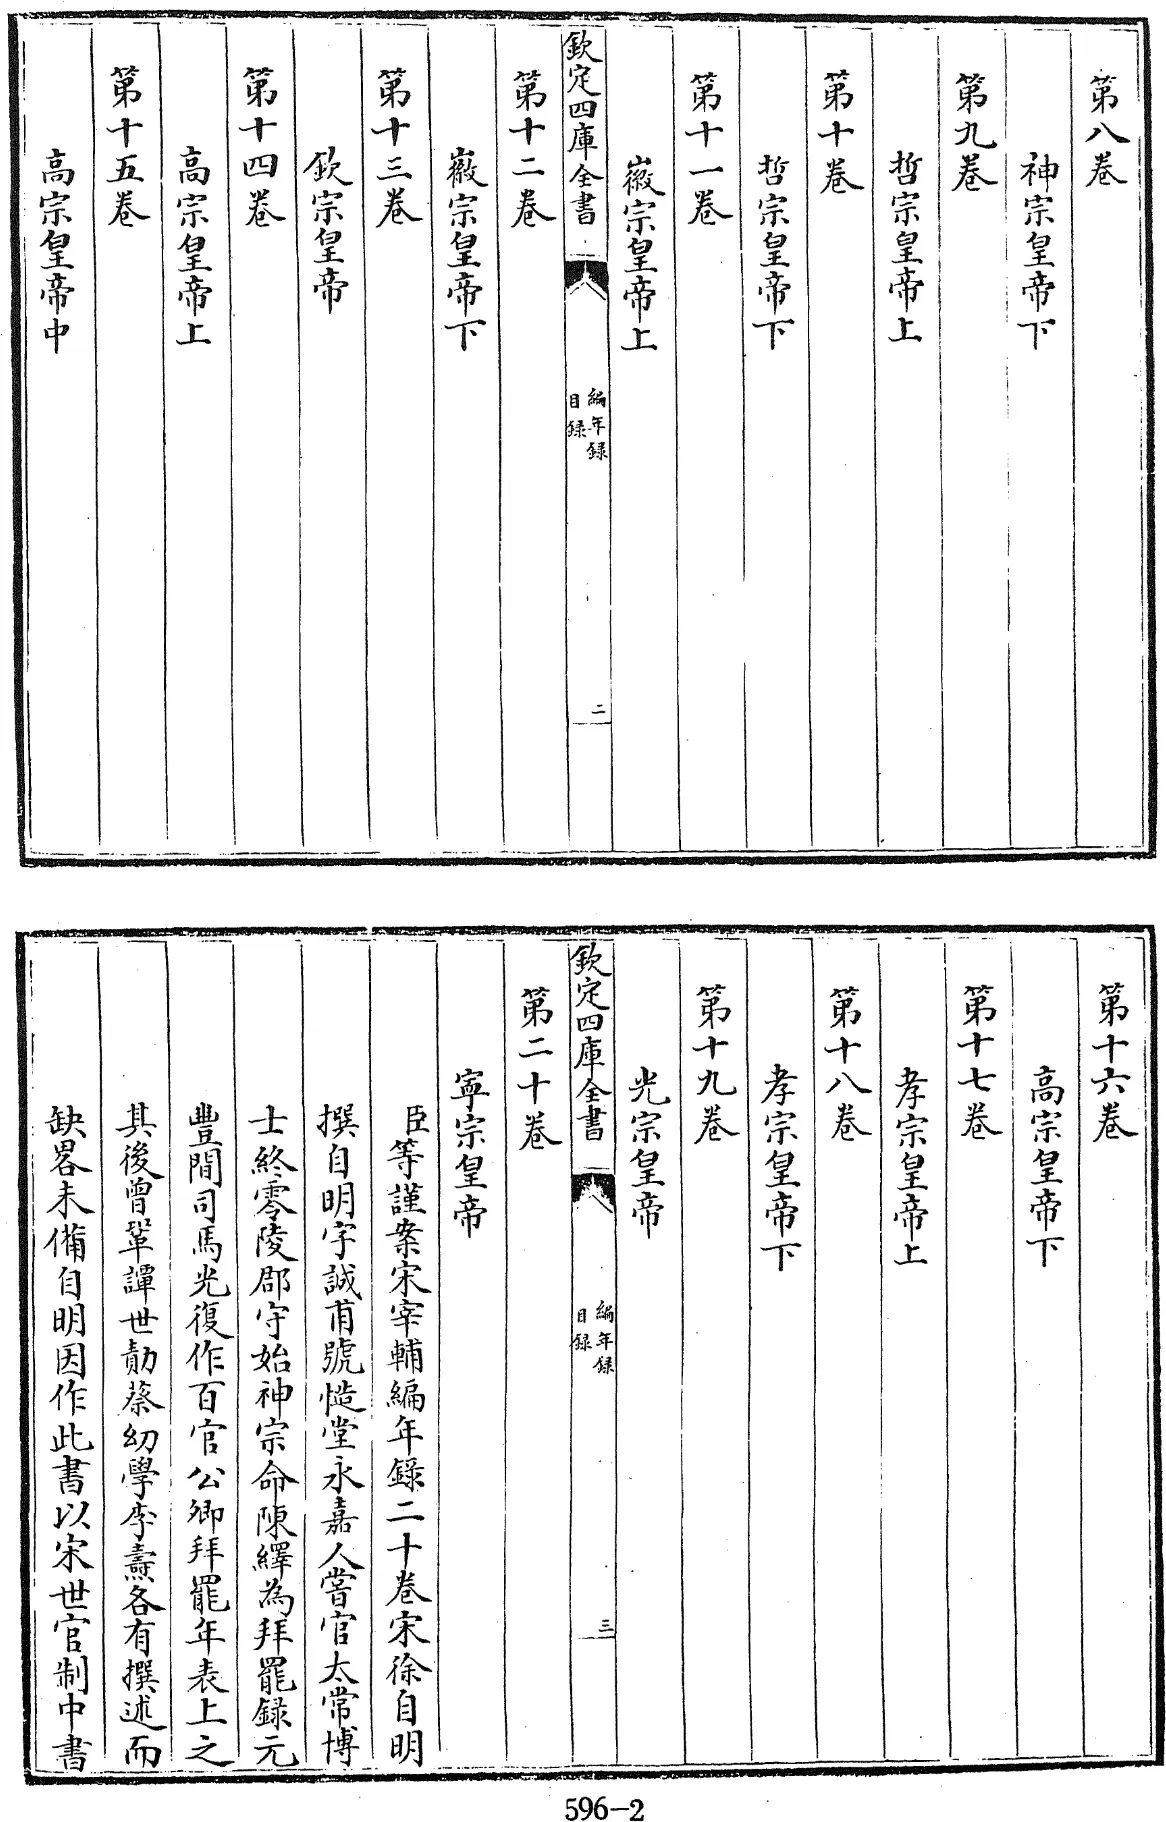 第八卷
神宗皇帝下
第九卷
哲宗皇帝上
第十卷
哲宗皇帝下
第十一卷
徽宗皇帝上
欽定四庫全書
編年録
目録
二
第十二卷
徽宗皇帝下
第十三卷
欽宗皇帝
第十四卷
高宗皇帝上
第十五卷
高宗皇帝中
第十六卷
高宗皇帝下
第十七卷
孝宗皇帝上
第十八卷
孝宗皇帝下
第十九卷
光宗皇帝
欽定四庫全書
編年録
目録
三
第二十卷
寧宗皇帝
臣等謹案宋宰輔編年錄二十卷宋徐自明
撰自明字誠甫號慥堂永嘉人嘗官太常博
士終零陵郡守始神宗命陳繹為拜罷録元
豐間司馬光復作百官公卿拜罷年表上之
其後曾鞏譚世勣蔡幼學李燾各有撰述而
缺畧未備自明因作此書以宋世官制中書
596-2